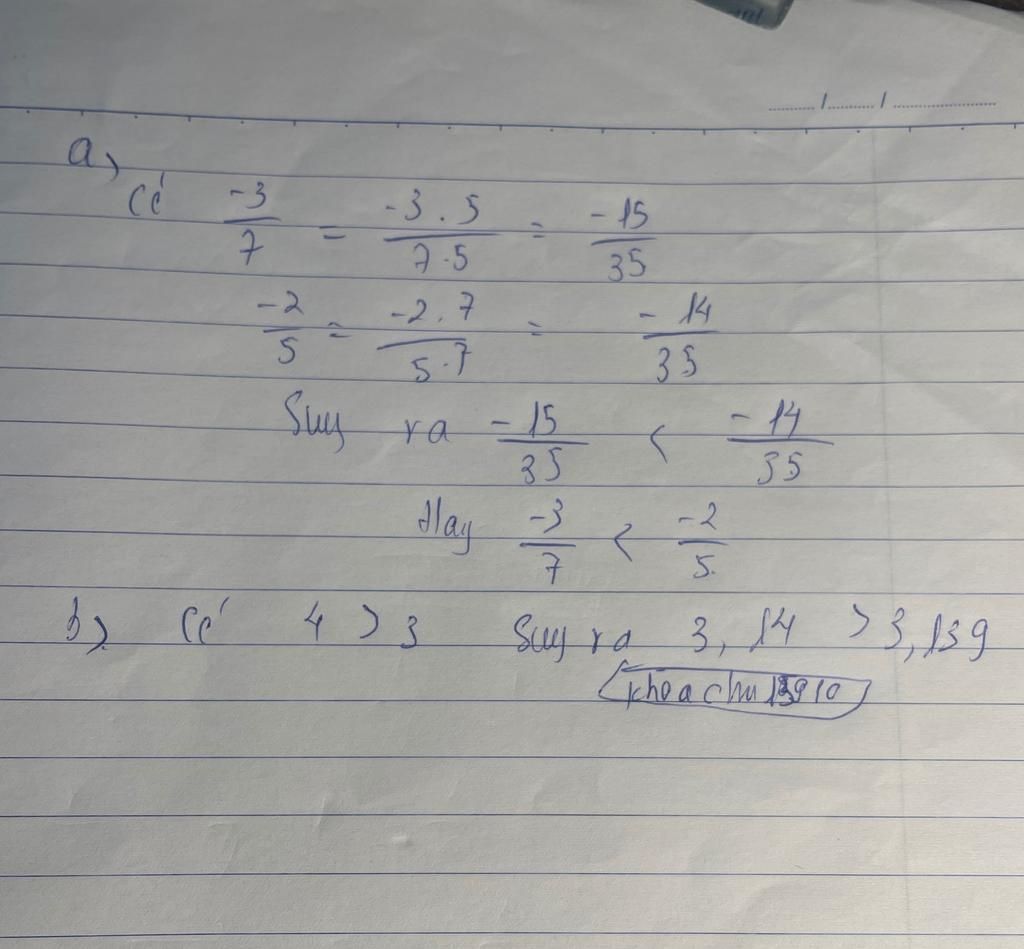 a,
Có -3/7 = -3.5/7.5 = -15/35
-2/5 = -2.7/5.7 = -14/35
Suy ra -15/35 < -14/35
Hay -3/7 < -2/5
b, Có 4 > 3 Suy ra 3,14 > 3,139